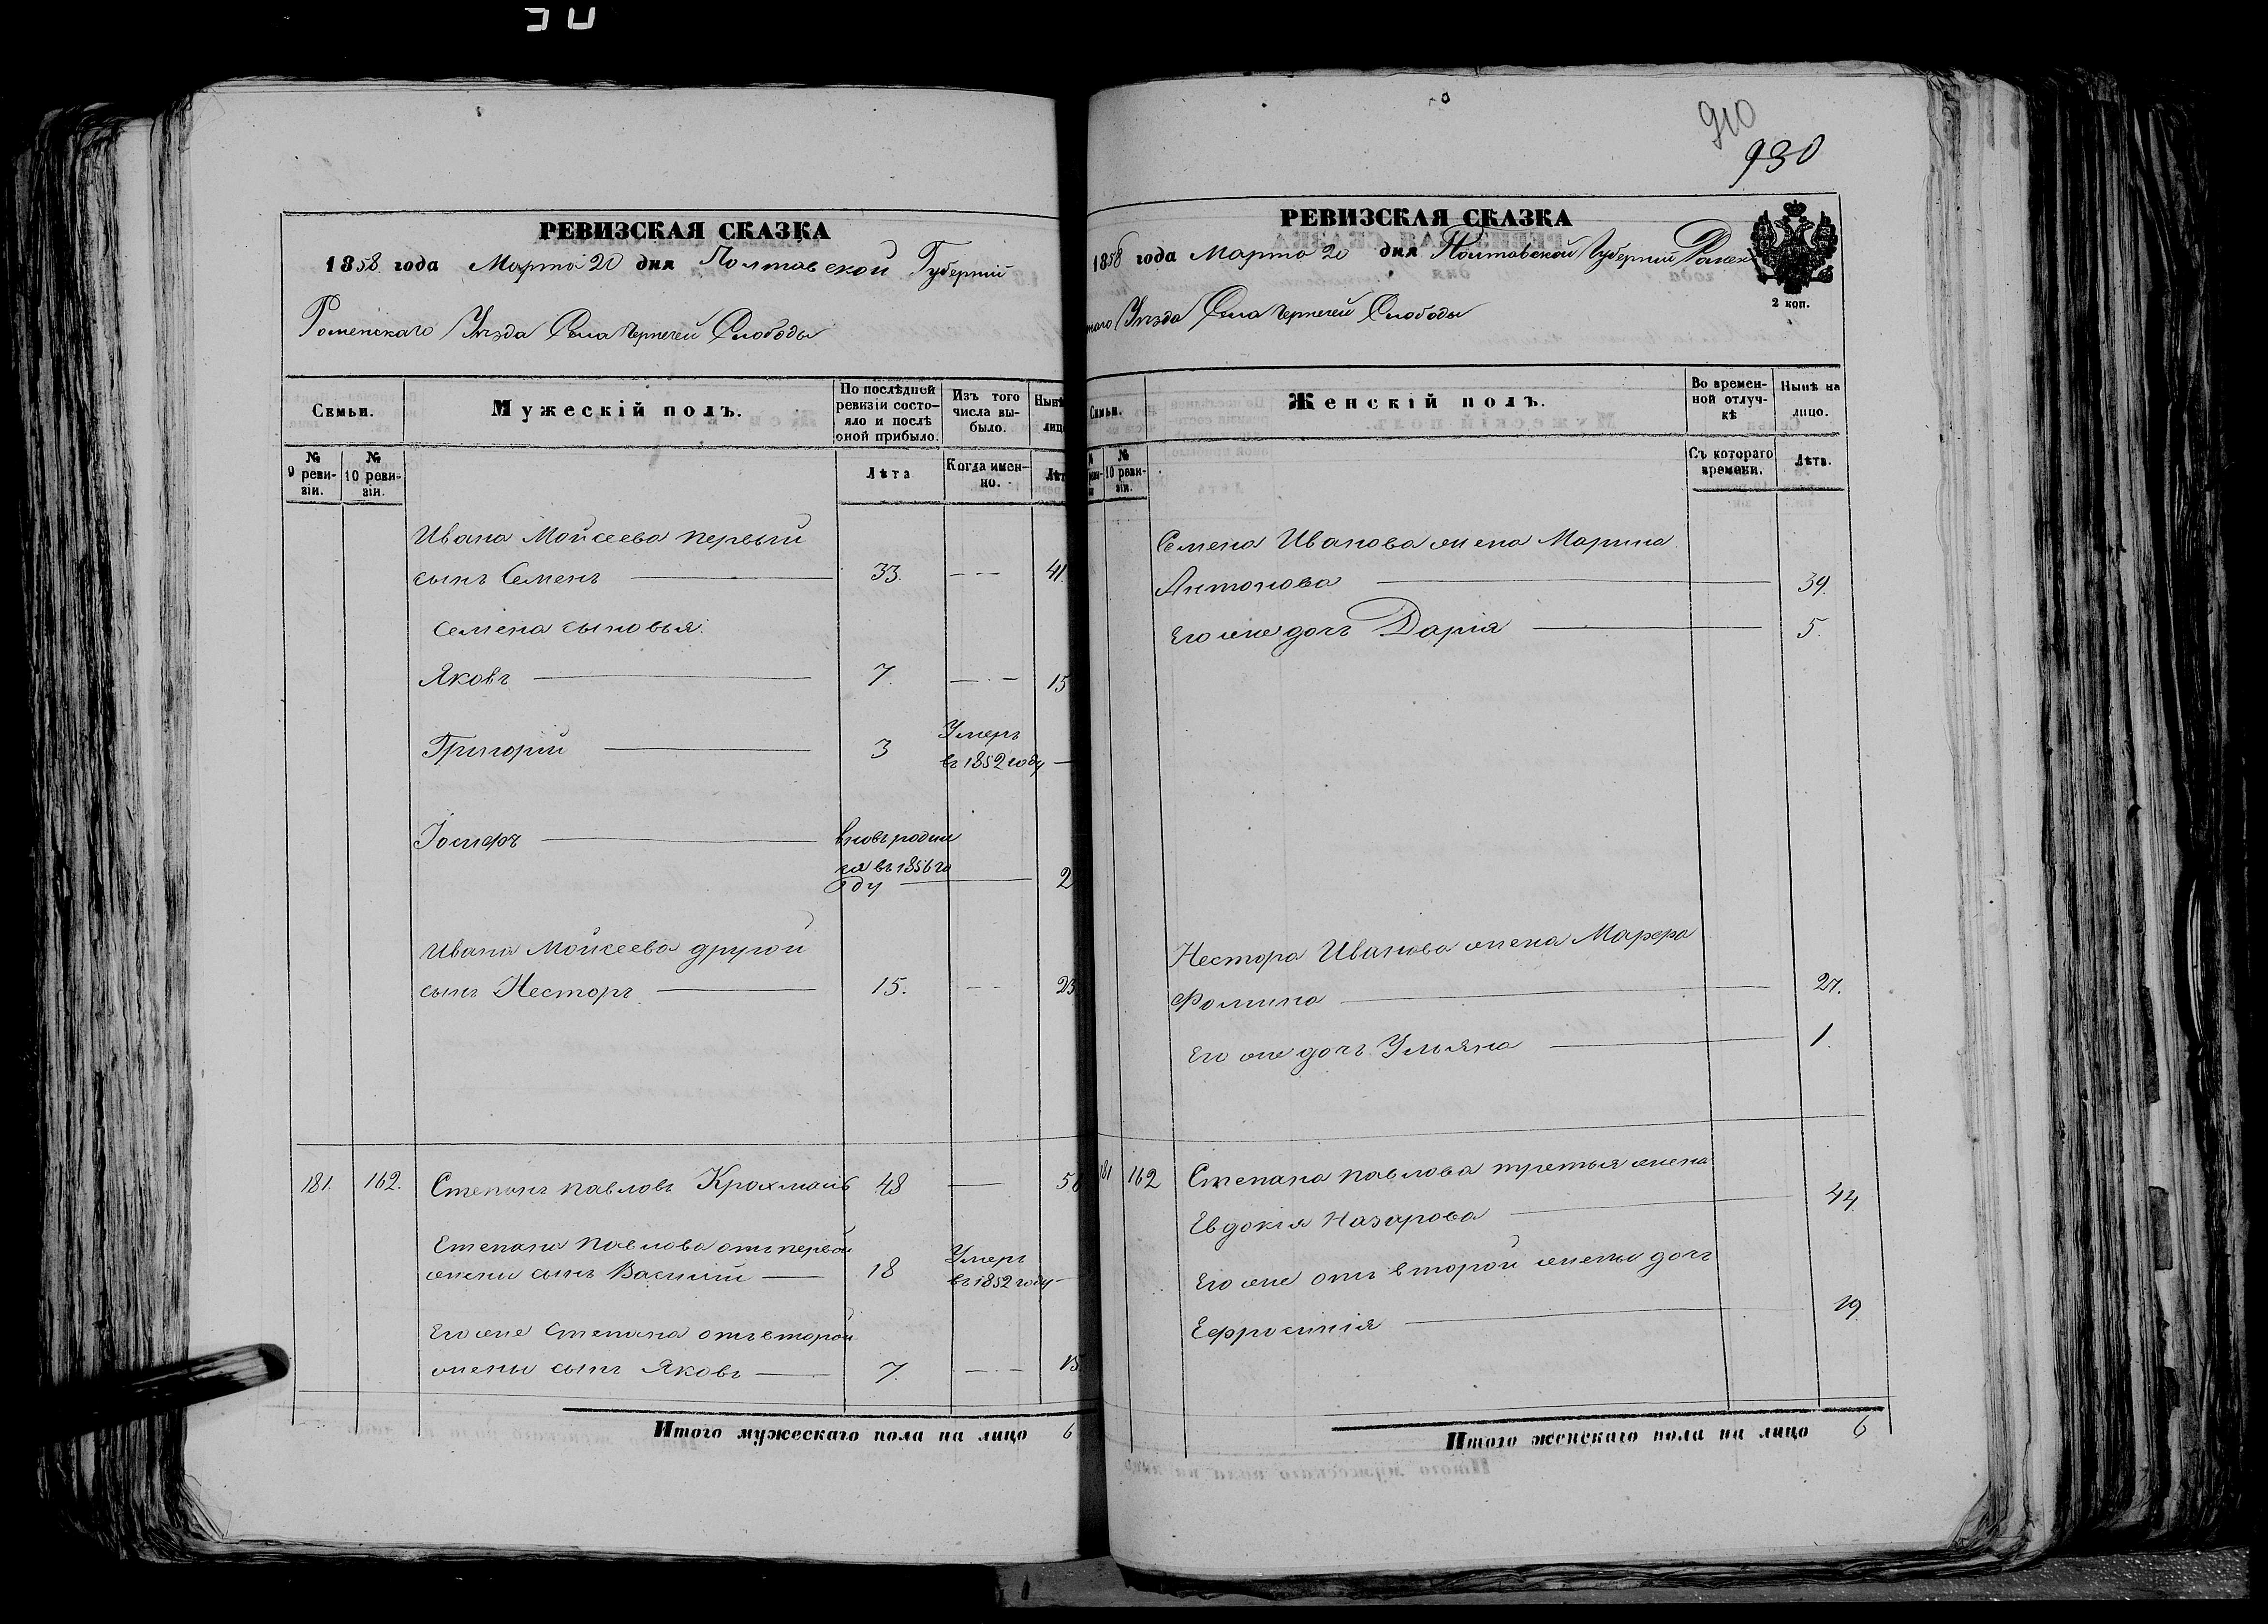 910
930
РЕВИЗСКАЯ СКАЗКА
1858 года Марта 20 дня Полтавской Губерніи
Роменскаго Уѣзда Села Чернечей Слободы
Семьи.
Мужескій полъ.
По послѣдней ревизіи состояло и послѣ оной прибыло.
Изъ того числа выбыло.
Нынѣ
лиц
№ 9 ревизіи.
№ 10 ревизіи.
Лѣта
Когда именно.
Лѣт
Ивана Мойсеева первый
сынъ Семенъ 33. 41.
Семена сыновья.
Яковъ 7. 15
Григорій 3 Умеръ
въ 1852 году
Іосифъ вновь родил
ся въ 1856 го
ду 2
Ивана Мойсеева другой
сынъ Несторъ 15. 23
181. 162. Степанъ Павловъ 48 5
Степана Павлова отъ первой
жены сынъ Василій 18 Умеръ
въ 1852 году
Его же Степана отъ второй
жены сынъ Яковъ 7. 15.
Итого мужескаго пола на лицо 6
РЕВИЗСКАЯ СКАЗКА
1858 года Марта 20 дня Полтавской Губерніи Ромен
скаго Уѣзда Села Чернечей Слободы
2 коп.
Семьи.
Женскій полъ.
Во временной отлучкѣ
Нынѣ на лицо.
№ 10 ревизіи.
Съ котораго времени.
Лѣта.
Семена Иванова жена Марина
Антонова 39.
Его же дочь Дарія 5.
Нестора Иванова жена Марфа
Фомина 27.
Его же дочь Ульяна 1.
181 162 Степана Павлова третья жена
Евдокія Назарова 44.
Его же отъ второй жены дочь
Ефросинія 19.
Итого женскаго пола на лицо 6